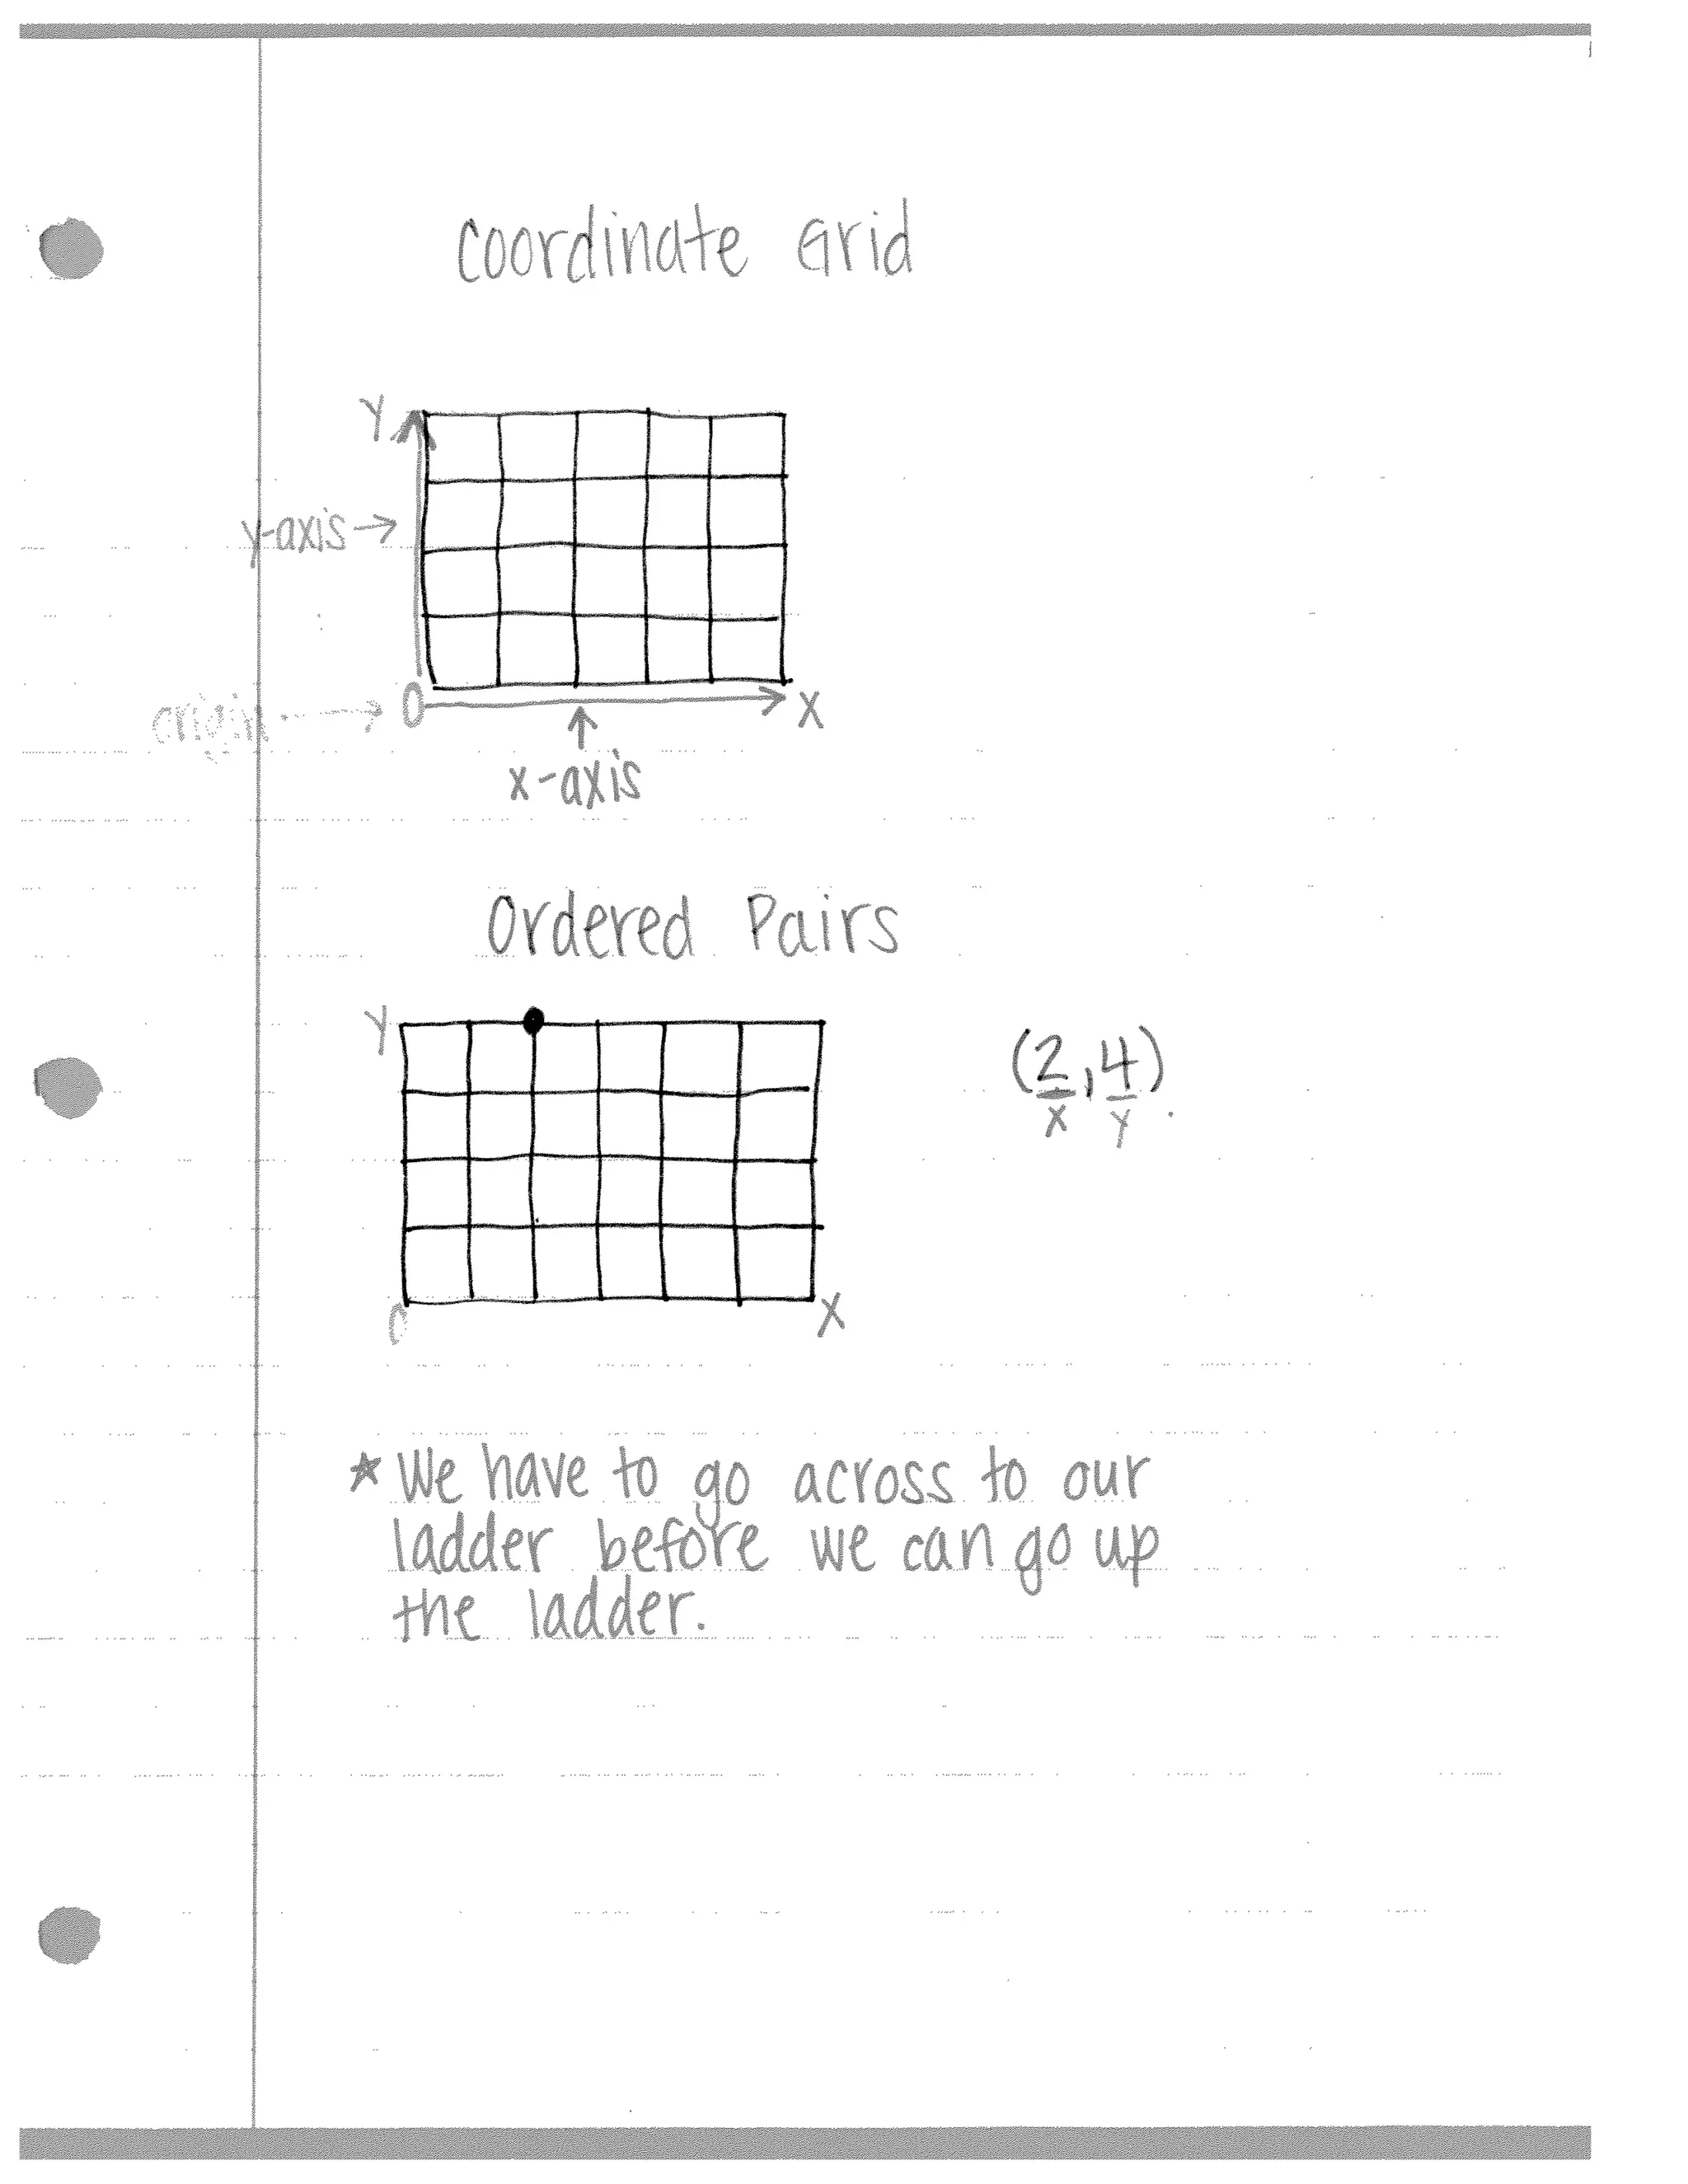 Coordinate Grid
Y
y-axis →
origin → 0
X
↑
x-axis
Ordered Pairs
Y
(2,4)
x y
0
X
* We have to go across to our
ladder before we can go up
the ladder.